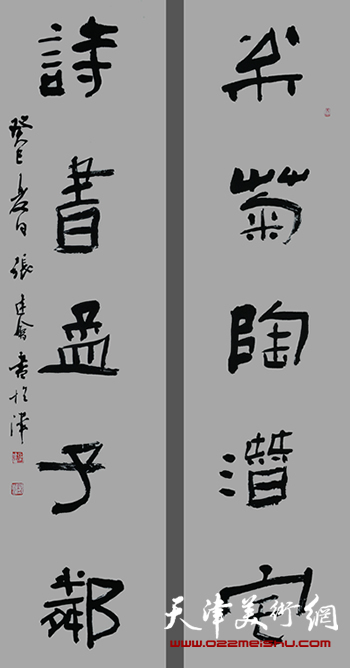 采菊陶潛宅
詩書孟子鄰
癸巳夏日張建會書於津
天津美術網
www.022meishu.com